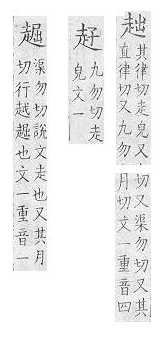 趉
其律切走皃又
直律切又九勿
切又渠勿切又其
月切文一重音四
九勿切走
皃文一
䞷
渠勿切說文走也又其月
切行越䞷也文一重音一